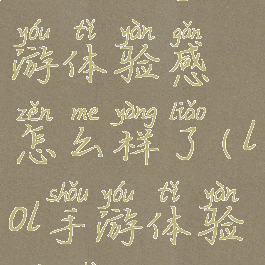 yóu tǐ yàn gǎn
游体验感
zěn me yàng liǎo
怎么样了（l
shǒu yóu tǐ yàn
ol手游体验